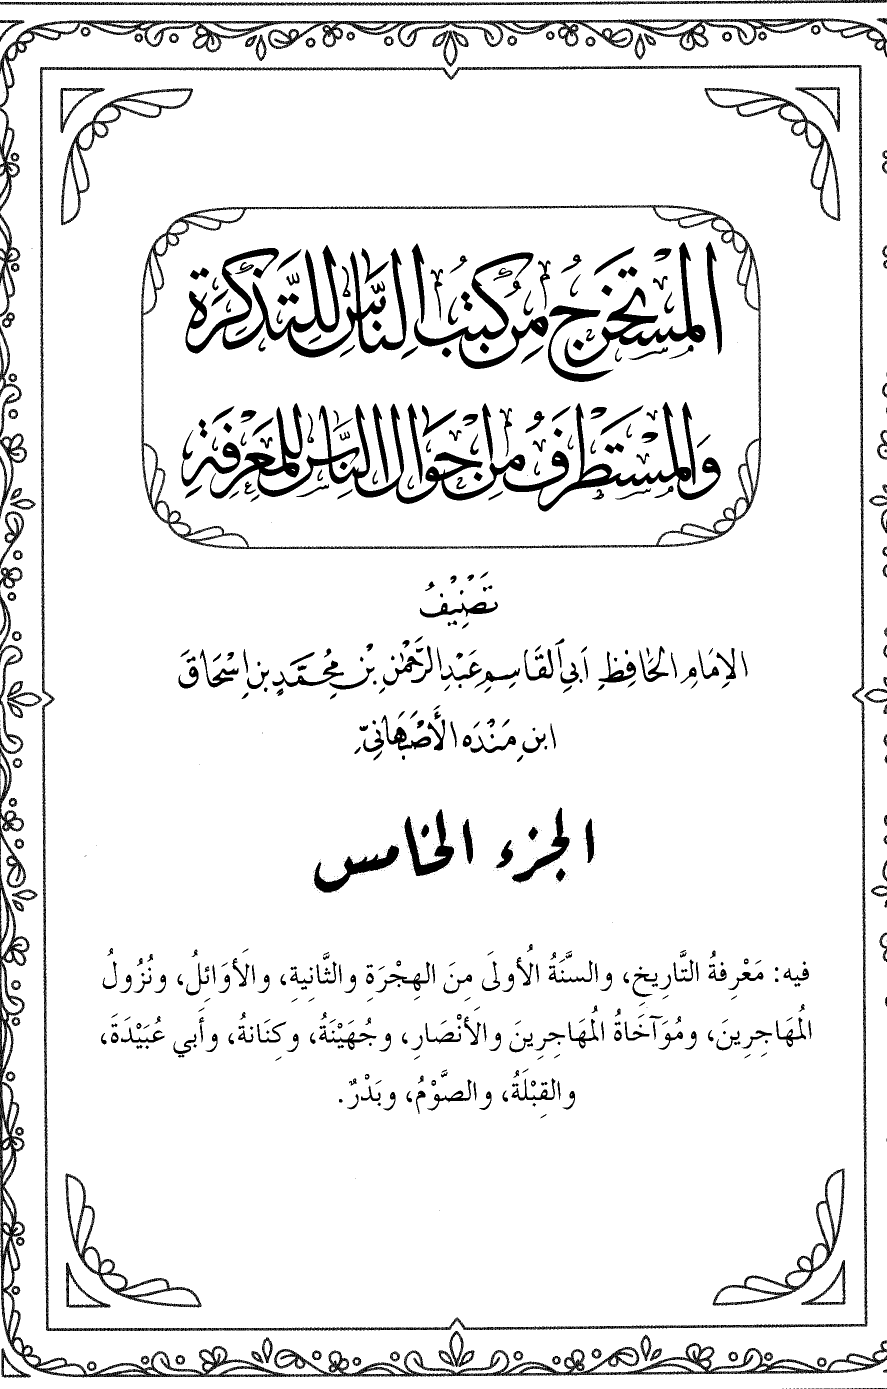 المُسْتَخْرَجُ مِنْ كُتُبِ النَّاسِ لِلتَّذْكِرَةِ
وَالمُسْتَطْرَفُ مِنْ أَحْوَالِ النَّاسِ لِلْمَعْرِفَةِ
تَصْنِيْفُ
الإِمَامِ الحَافِظِ أَبِي القَاسِمِ عَبْدِ الرَّحْمٰنِ بْنِ مُحَمَّدِ بنِ إِسْحَاقَ
ابنِ مَنْدَه الأَصْبَهَانِيّ
الجزء الخامس
فيه: مَعْرِفةُ التَّاريخِ، والسَّنَةُ الأُولَى مِنَ الهِجْرَةِ والثَّانِيةِ، والأَوَائِلُ، ونُزُولُ
المُهَاجِرِينَ، ومُوَآخَاةُ المُهَاجِرِينَ والأَنْصَارِ، وجُهَيْنَةُ، وكِنَانةُ، وأَبي عُبَيْدَةَ،
والقِبْلَةُ، والصَّوْمُ، وبَدْرٌ.